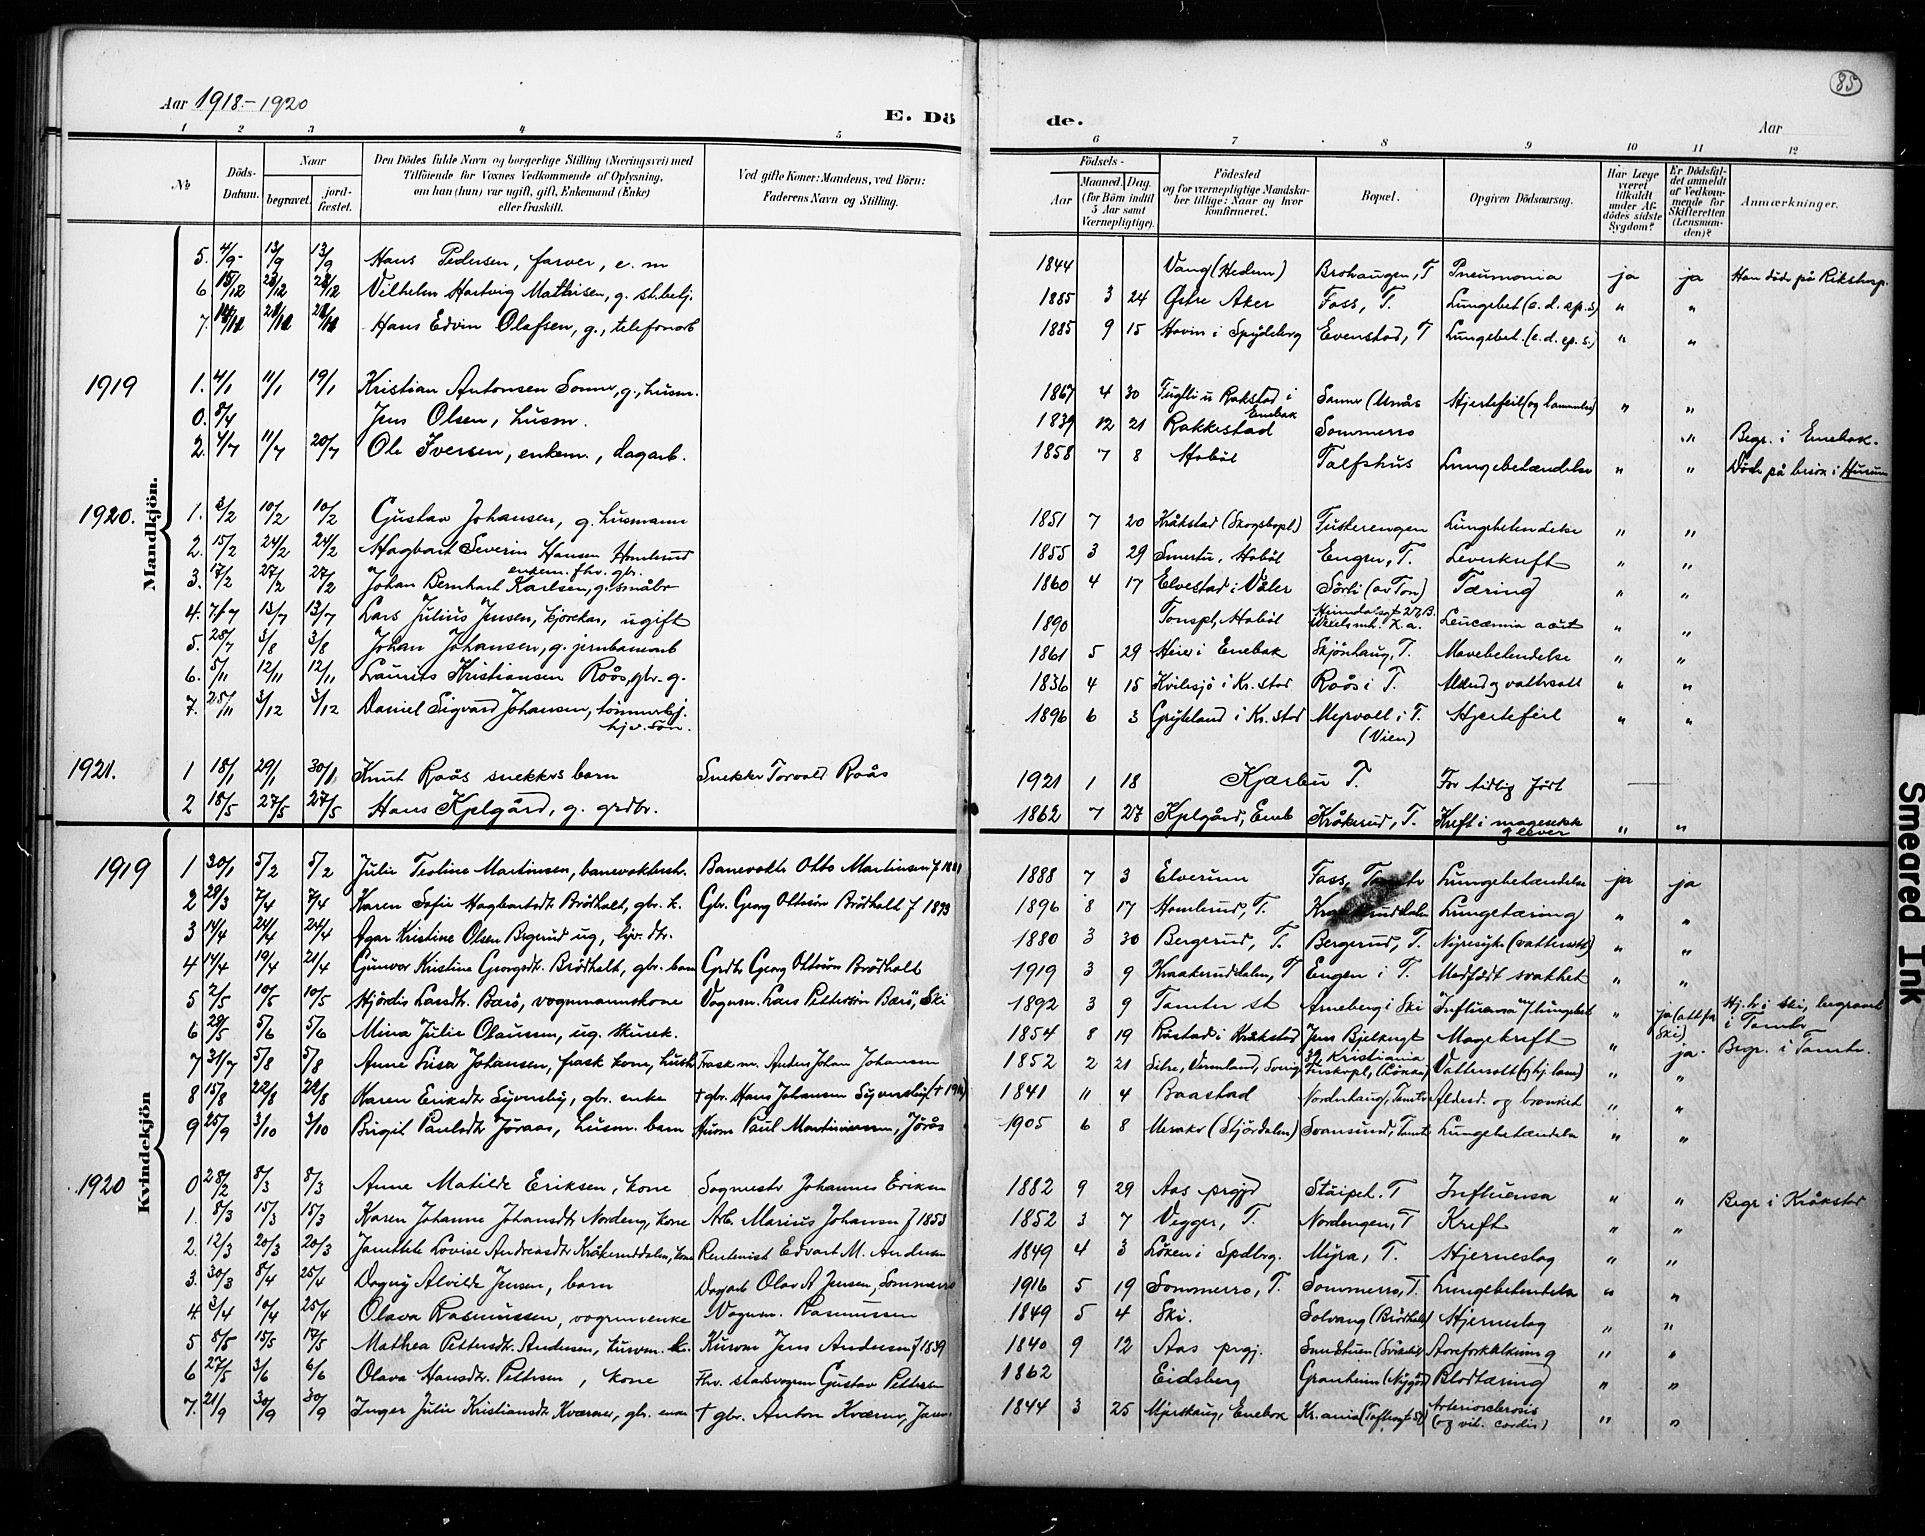 Aar 1918.-1920
E. Dö
de.
85
Aar
1 2 3 4 5 6 7 8 9 10 11 12
No
Döds-Datum.
Naar
begravet.
jord-fæstet.
Den Dödes fulde Navn og borgerlige Stilling (Næringsvei) med
Tilföiende for Voxnes Vedkommende af Oplysning,
om han (hun) var ugift, gift, Enkemand (Enke)
eller fraskilt.
Ved gifte Koner: Mandens, ved Börn:
Faderens Navn og Stilling.
Födsels-
Aar
Maaned. Dag.
(for Börn indtil
5 Aar samt
Værnepligtige).
Födested
og for værnepligtige Mandska-
ber tillige: Naar og hvor
konfirmeret.
Bopæl.
Opgiven Dödsaarsag.
Har Læge
været
tilkaldt
under Af-
dödes sidste
Sygdom?
Er Dödsfal-
det anmeldt
af Vedkom-
mende for
Skifteretten
(Lensman-
den)?
Anmærkninger.
Mandkjön.
5. 4/9 13/9 13/9 Hans Pedersen, farver, e. m 1844 Vang (Hedem) Brohaugen, T Pneumonia ja ja Han döde på Rikshosp.
6 15/12 23/12 23/12 Vilhelm Hartvig Mathisen, g. st.betj. 1885 3 24 Østre Aker Foss, T. Lungebet (e. d. sp. s) " "
7. Hans Edvin Olafsen, g., telefonarb 1885 9 15 Hovin i Spydeberg Evenstad, T Lungebet. (e. d. sp. s.) " "
1919 1. 4/1 11/1 19/1 Kristian Antonsen Sonner, g., husm. 1867 4 30 Fugleli u Rakstad i Enebak Sonner (Unås Hjertefeil (og lammelse) " "
0. 8/4 Jens Olsen, husm. 1839 12 21 Rakkestad Sommerro " Begr. i Enebak.
2. 4/7 11/7 20/7 Ole Iversen, enkem., dagarb. 1858 7 8 Hobøl Talfshus Lungebetændelse " " Döde på besök i Husum
1920. 1. 3/2 10/2 10/2 Gustav Johansen, g. husmann 1851 7 20 Kråkstad (Skogsbopl) Fuskerengen Lungebetendelse " "
2. 15/2 24/2 24/2 Hagbart Severin Hansen Homlerud enkem. fhv. gbr. 1855 3 29 Smertu, Hobøl Engen, T. Leverkreft " "
3. 17/2 27/2 27/2 Johan Bernhart Karlsen, g. småbr 1860 4 17 Elvestad i Våler Sörli (av Ton) Tæring " "
4. 7/7 13/7 13/7 Lars Julius Jensen, kjörekar, ugift 1890 Tonspl, Hobøl Heimdalsgt 27 B. Kr.a. Leucæmia acut " "
5. 28/7 3/8 3/8 Johan Johansen, g. jernbanearb 1861 5 29 Heier i Enebak Skjönhaug, T. Mavebetendelse " "
6. 5/11 12/11 12/11 Laurits Kristiansen Roås, gbr. g. 1836 4 15 Kvilesjö i Kr. stad Roås i T. Alderd og vattersott " "
7. 25/11 3/12 3/12 Daniel Sigvard Johansen, tömmerhj. hjv. sön. 1896 6 3 Gryteland i Kr. stad Myrvoll i T. (Vien) Hjertefeil " "
1921. 1 18/1 29/1 30/1 Knut Roås snekkers barn Snekker Torvald Roås 1921 1 18 Kjærbu T. For tidlig födt
2 18/5 27/5 27/5 Hans Kjelgård, g. grdbr. 1862 7 27 Kjelgård, Eneb Kråkerud, T. Kreft i magesekk og lever " "
Kvindekjön
1919 1 30/1 5/2 5/2 Julie Teoline Martinsen, banevokterk. Banevokter Otto Martinsen f 1881 1888 7 3 Elverum Foss, Tomter Lungebetændelse ja ja
2 29/3 7/4 7/4 Karen Sofie Hagbartsdt Brödholt, gbr. k. Gbr. Georg Ottosön Brödholt f 1893 1896 8 17 Homlerud, T. Lungetæring " "
3 14/4 24/4 24/4 Agar Kristine Olsen Bergerud ug, hjv. dtr. 1880 3 30 Bergerud, T. Bergerud, T. Nyresyke (vattersott) " "
4 14/4 19/4 21/4 Gunvor Kristine Georgsdt. Brödholt, gbr. barn Grdbr Georg Ottosön Brödholt 1919 3 9 Kraakeruddalen, T Engen i T. Medfödt svakhet " "
5 2/5 10/5 10/5 Hjördis Larsdtr. Barö, vognmannskone Vognm. Lars Pettersön Barö, Ski 1892 3 9 Tomter st Arneberg i Ski Influensa m/lungebet " ja (att fra Ski) Hj.h. i Ski, begravet i Tomter
6 29/5 5/6 5/6 Mina Julie Olaussen, ug. husek. 1854 8 19 Rustad i Kråkstad Jens Bjelkesgt 39 Kristiania Magekreft " ja. Begr. i Tomter.
7 31/7 5/8 5/8 Anne Lisa Johansen, frask kone, hush Frask. m. Anders Johan Johansen 1852 2 21 Silre, Vermland, Sverig Fuskopl, (Lökka) Vattersott (og hj. lam) " "
8 15/8 22/8 22/8 Karen Eriksdt Syversby, gbr. enke † gbr. Hans Johansen Syversby 1841 11 4 Baastad Norderhaug, Tomter Aldersd. og bronkit " "
9 25/9 3/10 3/10 Birgit Paulsdt Joraas, husm. barn Husm Paul Martiniussen, Jörås 1905 6 8 Meraker (Stjördalen) Svansund, Tomter Lungebetændelse " "
1920 0 28/2 8/3 8/3 Anne Matilde Eriksen, kone Sagmester Johannes Eriksen 1882 9 29 Aas prgjd Ståipet. T Influensa " " Begr i Kråkstad
1. 8/3 15/3 15/3 Karen Johanne Johansdt Nordeng, kone Arb. Marius Johansen f 1853 1852 3 7 Vegger, T. Nordengen, T Kreft " "
2. 12/3 20/3 20/3 Jonette Lovise Andreasdt Kråkeruddalen, kone Rentenist Edvart M. Andersen 1849 4 3 Löken i Spdbrg. Myra, T. Hjerneslag " "
3. 30/3 8/4 25/4 Dagny Alvilde Jensen, barn Dagarb Olav A Jensen, Sommerro 1916 5 19 Sommerro, T. Sommerro, T. Lungebetendelse " "
4. 3/4 10/4 25/4 Olava Rasmussen, vognm enke Vognm. Rasmussen 1849 5 4 Ski. Solvang (Brödholt) Hjerneslag " "
5 8/5 15/5 17/5 Mathea Pettersdt. Andersen, kurvm. k. Kurvm Jens Andersen f 1839 1840 9 12 Aas prgj. Aareforkalkning " "
6 27/5 3/6 6/6 Olava Hansdt. Pettersen, kone Fhv. stadsvognm Gustav Pettersen 1862 Eidsberg Granheim (Nygård) Blodtæring " "
7. 21/9 30/9 30/9 Inger Julie Kristiansdt Kværner, gbr. enke † gbr. Anton Kværner, 1844 3 25 Mjerskaug, Enebak Kr.ania (Toftesgt 57) Arteriosclerosis (og vit. cordis) " "
Smeared Ink